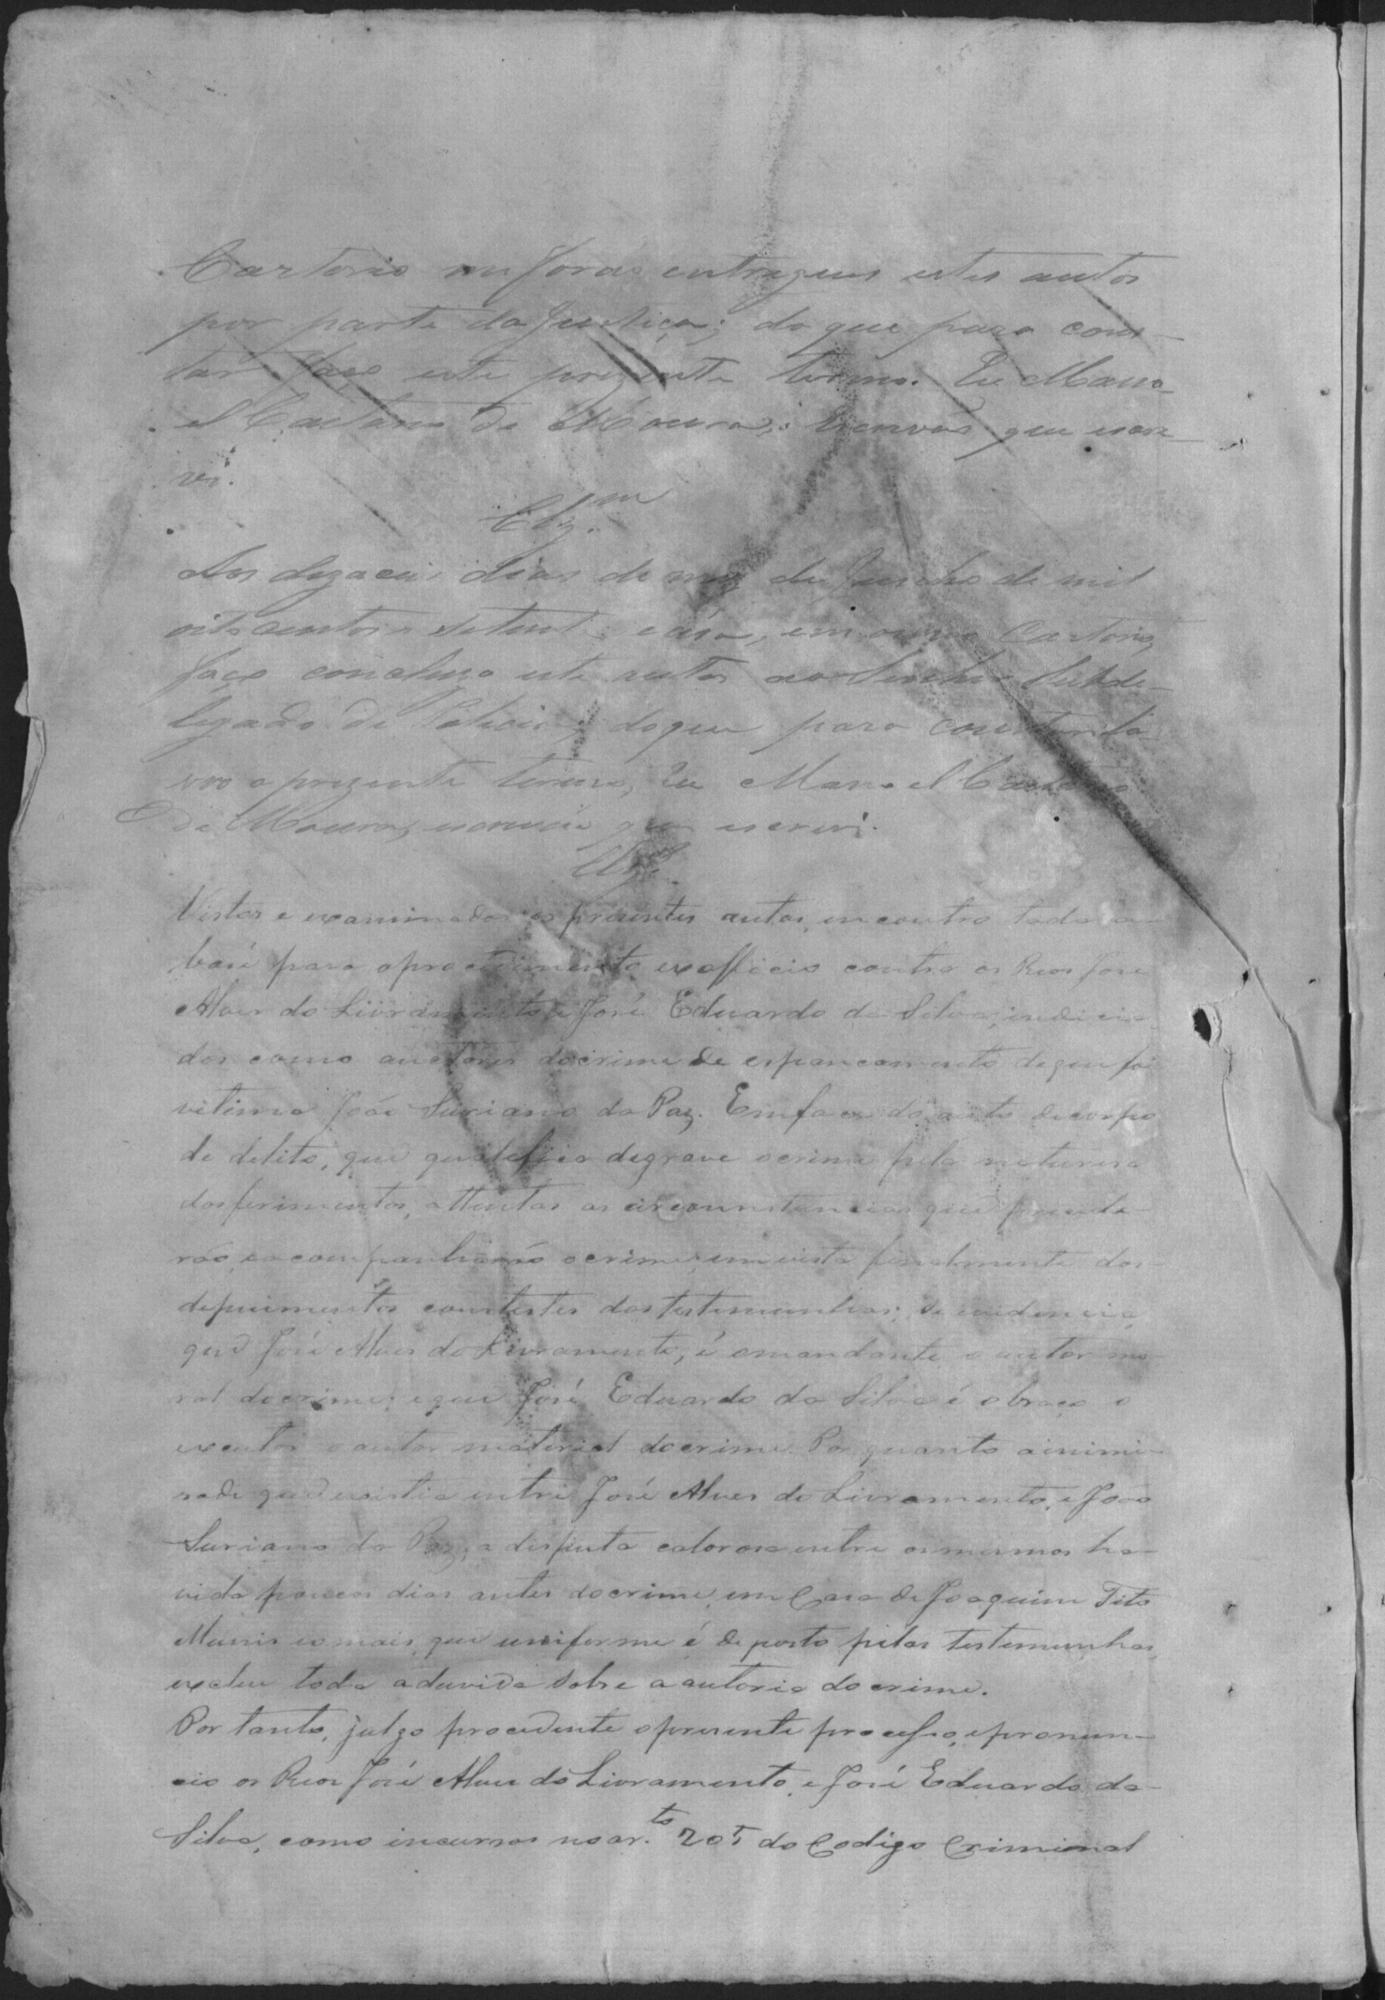 Cartorio me forão entregues estes autos
por parte da Justiça; do que para cons-
tar faço este prezente termo. Eu Mano-
el Caetano de Moura, escrivão que escre-
vi.
Clz.m
Aos dezaceis dias do mez de Junho de mil
oito centos setenta e, em meu Cartorio,
faço concluzo estes autos ao Senhor Subde-
legado de Policia; do que para constar la-
vro o prezente termo, Eu Manoel Caetano
de Moura, escrivão que escrevi.
Clz.
Vistos e examinados os presentes autos, encontro toda a
base para o procedimento exofficio contra os Reos José
Alves do Livramento, e José Eduardo da Silva, indicia-
dos como auctores do crime de espancamento de que foi
vitima João Suriano da Paz. Em face do auto de corpo
de delito, que qualifica de grave o crime pela naturesa
dos ferimentos, attentas as circounstancias que precede-
rão, e acompanharão o crime, em vista finalmente dos
depuimentos contestes das testemunhas; se evidencia,
que José Alves do Livramento, é o mandante o autor mo-
ral do crime; e que José Eduardo da Silva é o braço o
executor o autor material do crime. Por quanto a inimi-
sade que existia entre José Alves do Livramento, e João
Suriano da Paz, a disputa calorosa entre os mesmos ha-
vida poucos dias antes do crime, em Casa de Joaquim Tito
Munis e o mais, que uniforme é deposto pelas testemunhas,
exclue toda a duvida sobre a autoria do crime.
Por tanto, julgo procedente o presente processo, e pronun-
cio os Reos José Alves do Livramento, e José Eduardo da
Silva, como incursos no ar.to 205 do Codigo Criminal